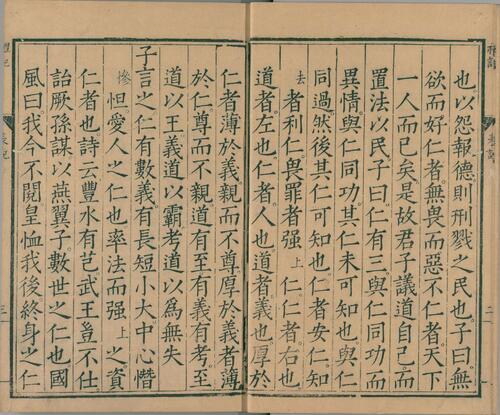 也以怨報德則刑戮之民也子曰無
欲而好仁者無畏而惡不仁者天下
一人而已矣是故君子議道自己而
置法以民子曰仁有三與仁同功而
異情與仁同功其仁未可知也與仁
同過然後其仁可知也仁者安仁知
去者利仁畏罪者強上仁仁者右也
道者左也仁者人也道者義也厚於
仁者薄於義親而不尊厚於義者薄
於仁尊而不親道有至有義有考至
道以王義道以霸考道以爲無失
子言之仁有數義有長短小大中心憯
慘怛愛人之仁也率法而強上之資
仁者也詩云豐水有芑武王豈不仕
詒厥孫謀以燕翼子數世之仁也國
風曰我今不閱皇恤我後終身之仁